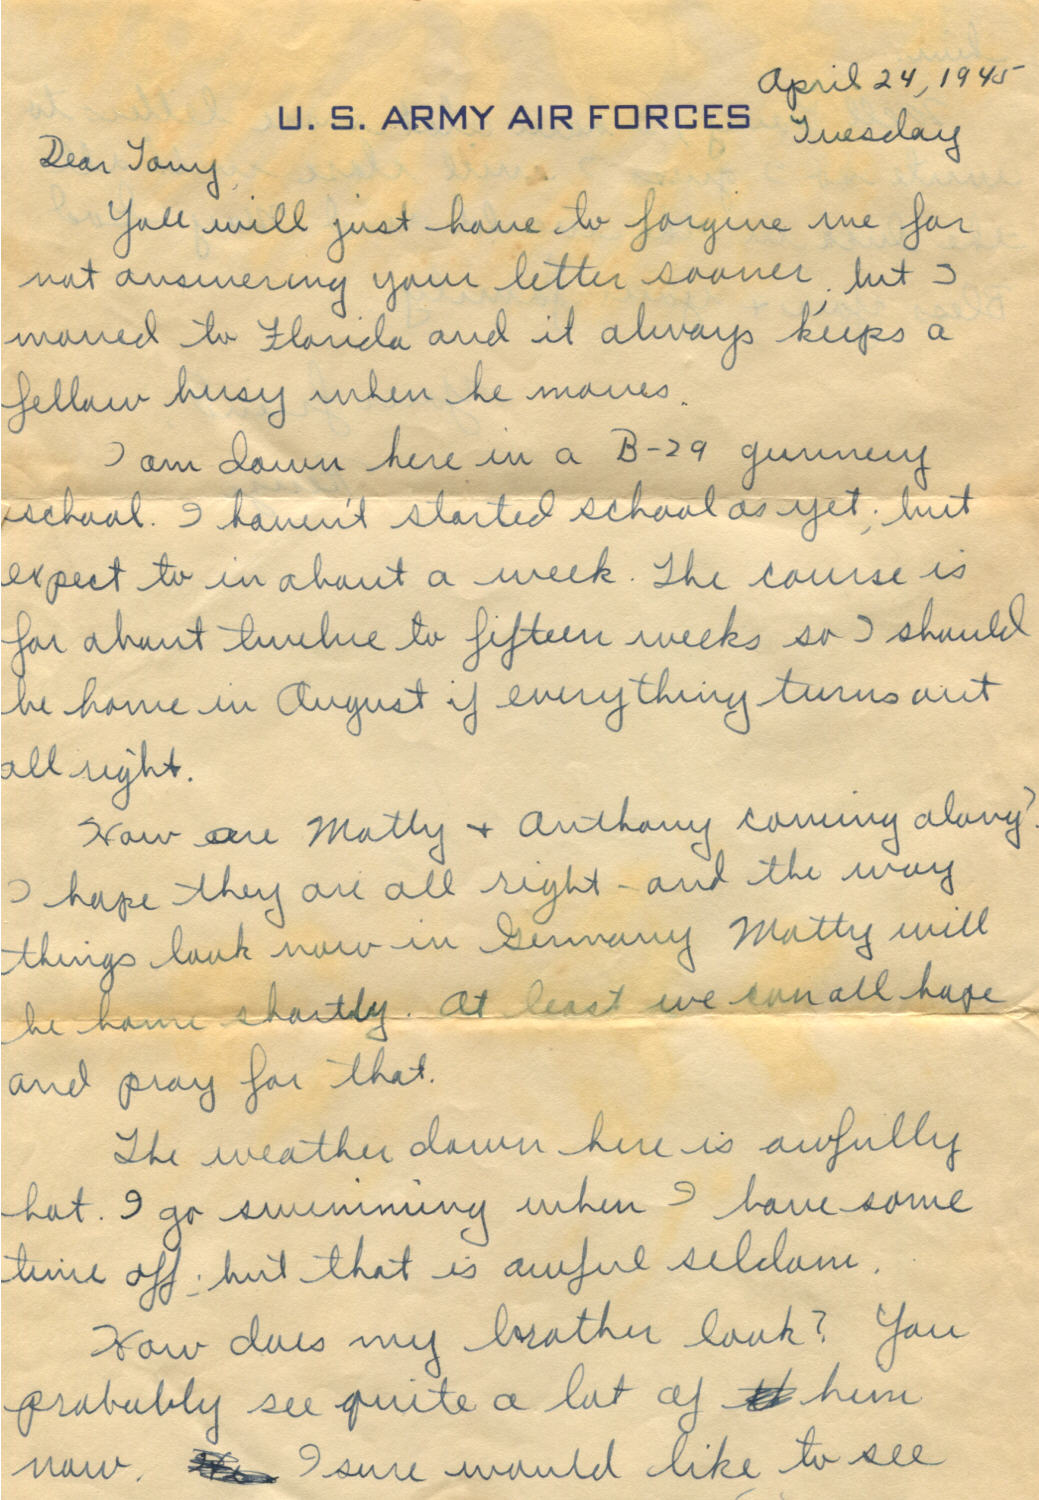 April 24, 1945
U. S. ARMY AIR FORCES
Tuesday
Dear Tony,
You will just have to forgive me for
not answering your letter sooner, but I
moved to Florida and it always keeps a
fellow busy when he moves.
I am down here in a B-29 gunnery
school. I haven't started school as yet; but
expect to in about a week. The course is
for about twelve to fifteen weeks so I should
be home in August if everything turns out
all right.
How are Matty + Anthony coming along?
I hope they are all right - and the way
things look now in Germany Matty will
be home shortly. At least we can all hope
and pray for that.
The weather down here is awfully
hot. I go swimming when I have some
time off; but that is awful seldom.
How does my brother look? You
probably see quite a lot of him
now. I sure would like to see